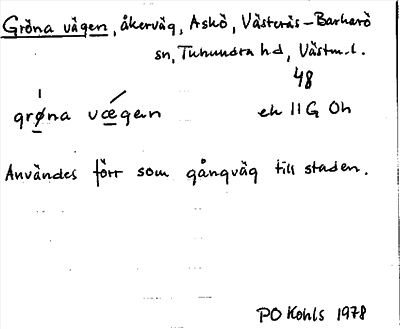 Gröna vägen, åkerväg, Askö, Västerås-Barkarö
sn, Tuhundra hd, Västm.l.
48
grøna vægen ek 11G Oh
Användes förr som gångväg till staden.
PO Kohls 1978